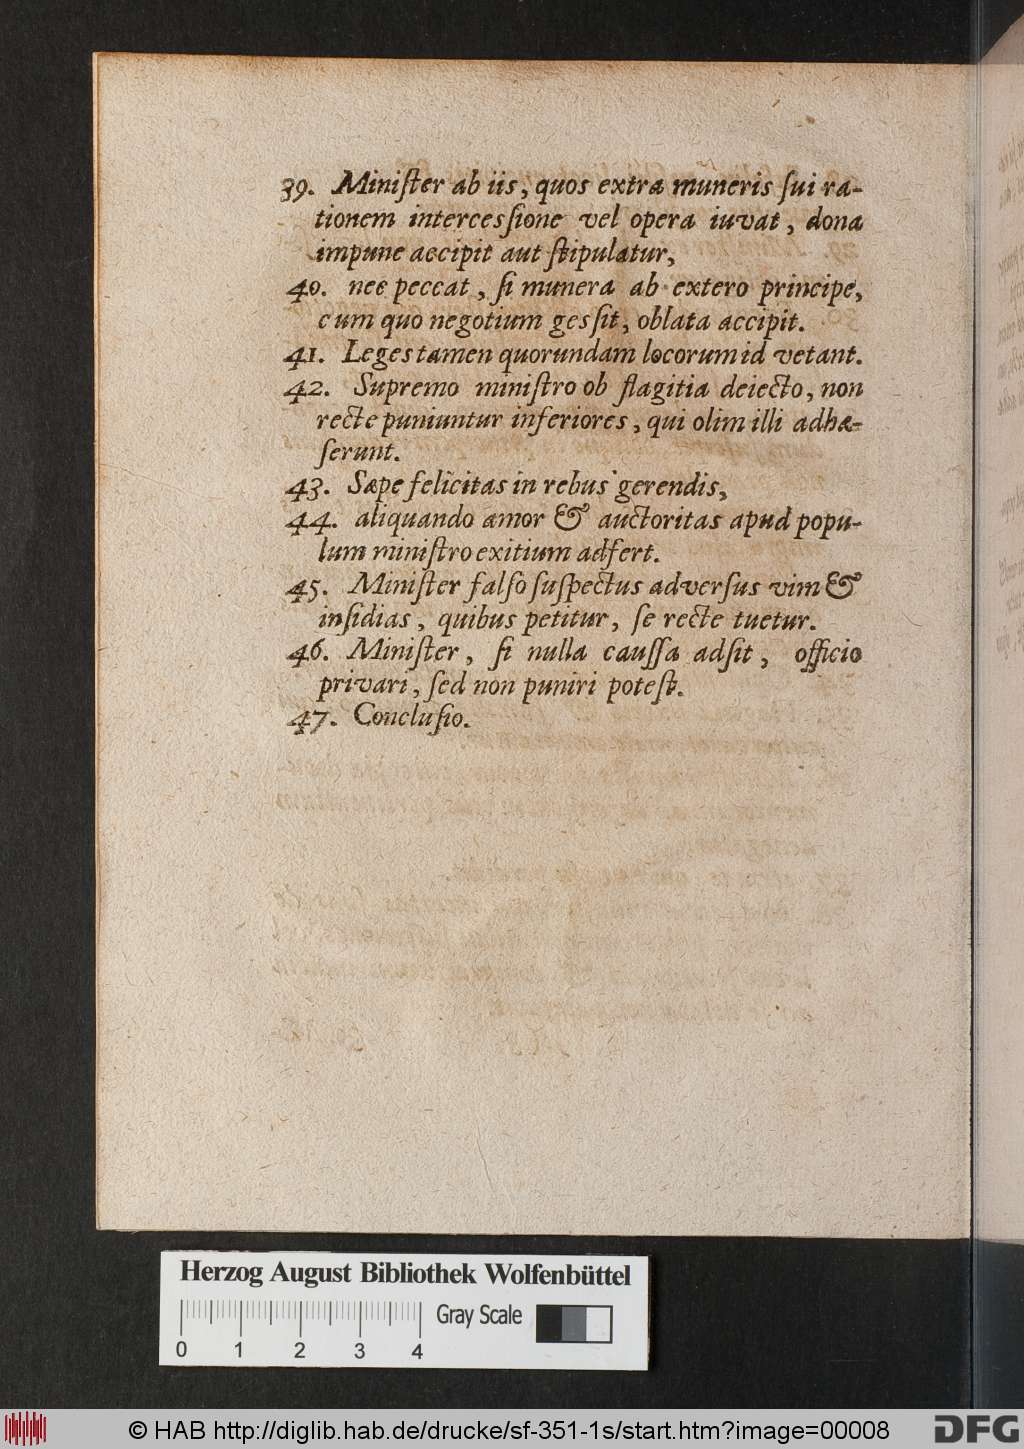 39. Miniſter ab iis, quos extra muneris ſui ra-
tionem interceſſione vel opera iuvat, dona
impune accipit aut ſtipulatur,
40. nec peccat, ſi munera ab extero principe,
cum quo negotium geſſit, oblata accipit.
41. Leges tamen quorundam locorum id vetant.
42. Supremo miniſtro ob flagitia deiecto, non
recte puniuntur inferiores, qui olim illi adhæ-
ſerunt.
43. Sæpe felicitas in rebus gerendis,
44. aliquando amor & auctoritas apud popu-
lum miniſtro exitium adfert.
45. Miniſter falſo ſuſpectus adverſus vim &
inſidias, quibus petitur, ſe recte tuetur.
46. Miniſter, ſi nulla cauſſa adſit, officio
privari, ſed non puniri poteſt.
47. Concluſio.
Herzog August Bibliothek Wolfenbüttel
Gray Scale
0 1 2 3 4
© HAB http://diglib.hab.de/drucke/sf-351-1s/start.htm?image=00008
DFG